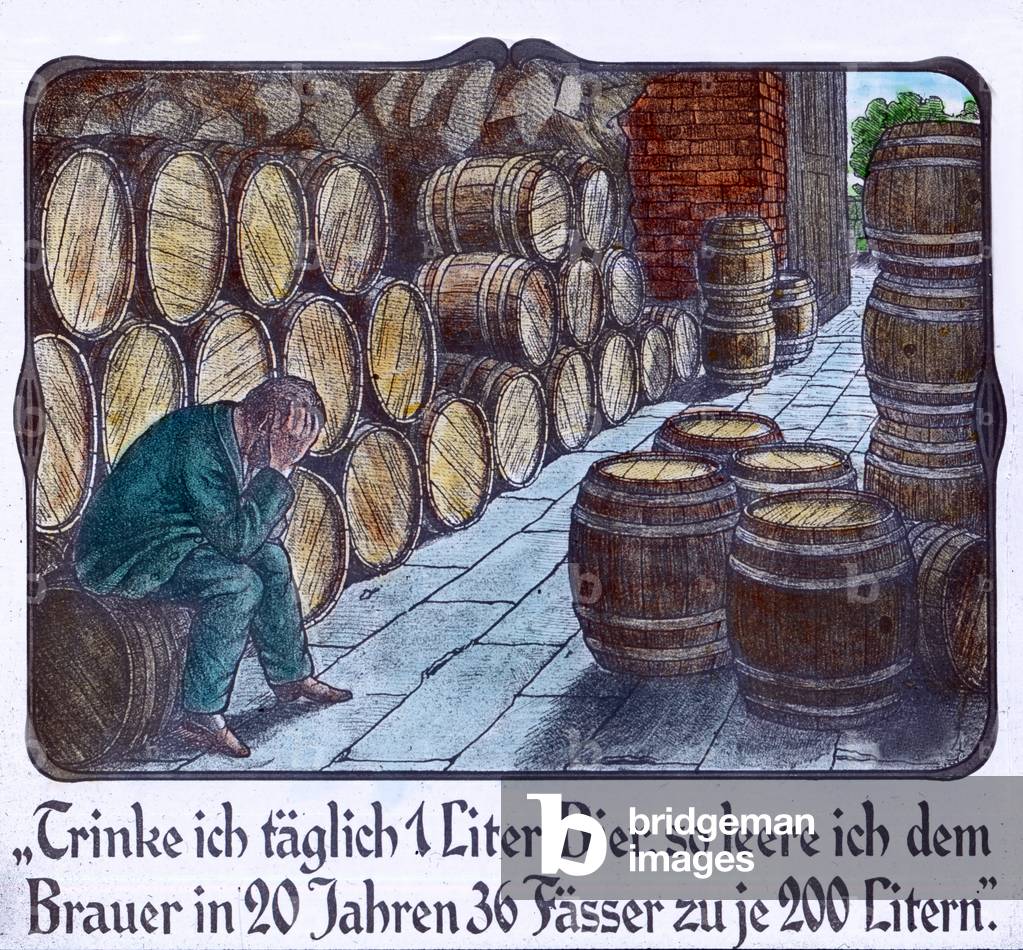 „Trinke ich täglich 1 Liter Bier so leere ich dem
Brauer in 20 Jahren 36 Fässer zu je 200 Litern.”
b bridgeman
images